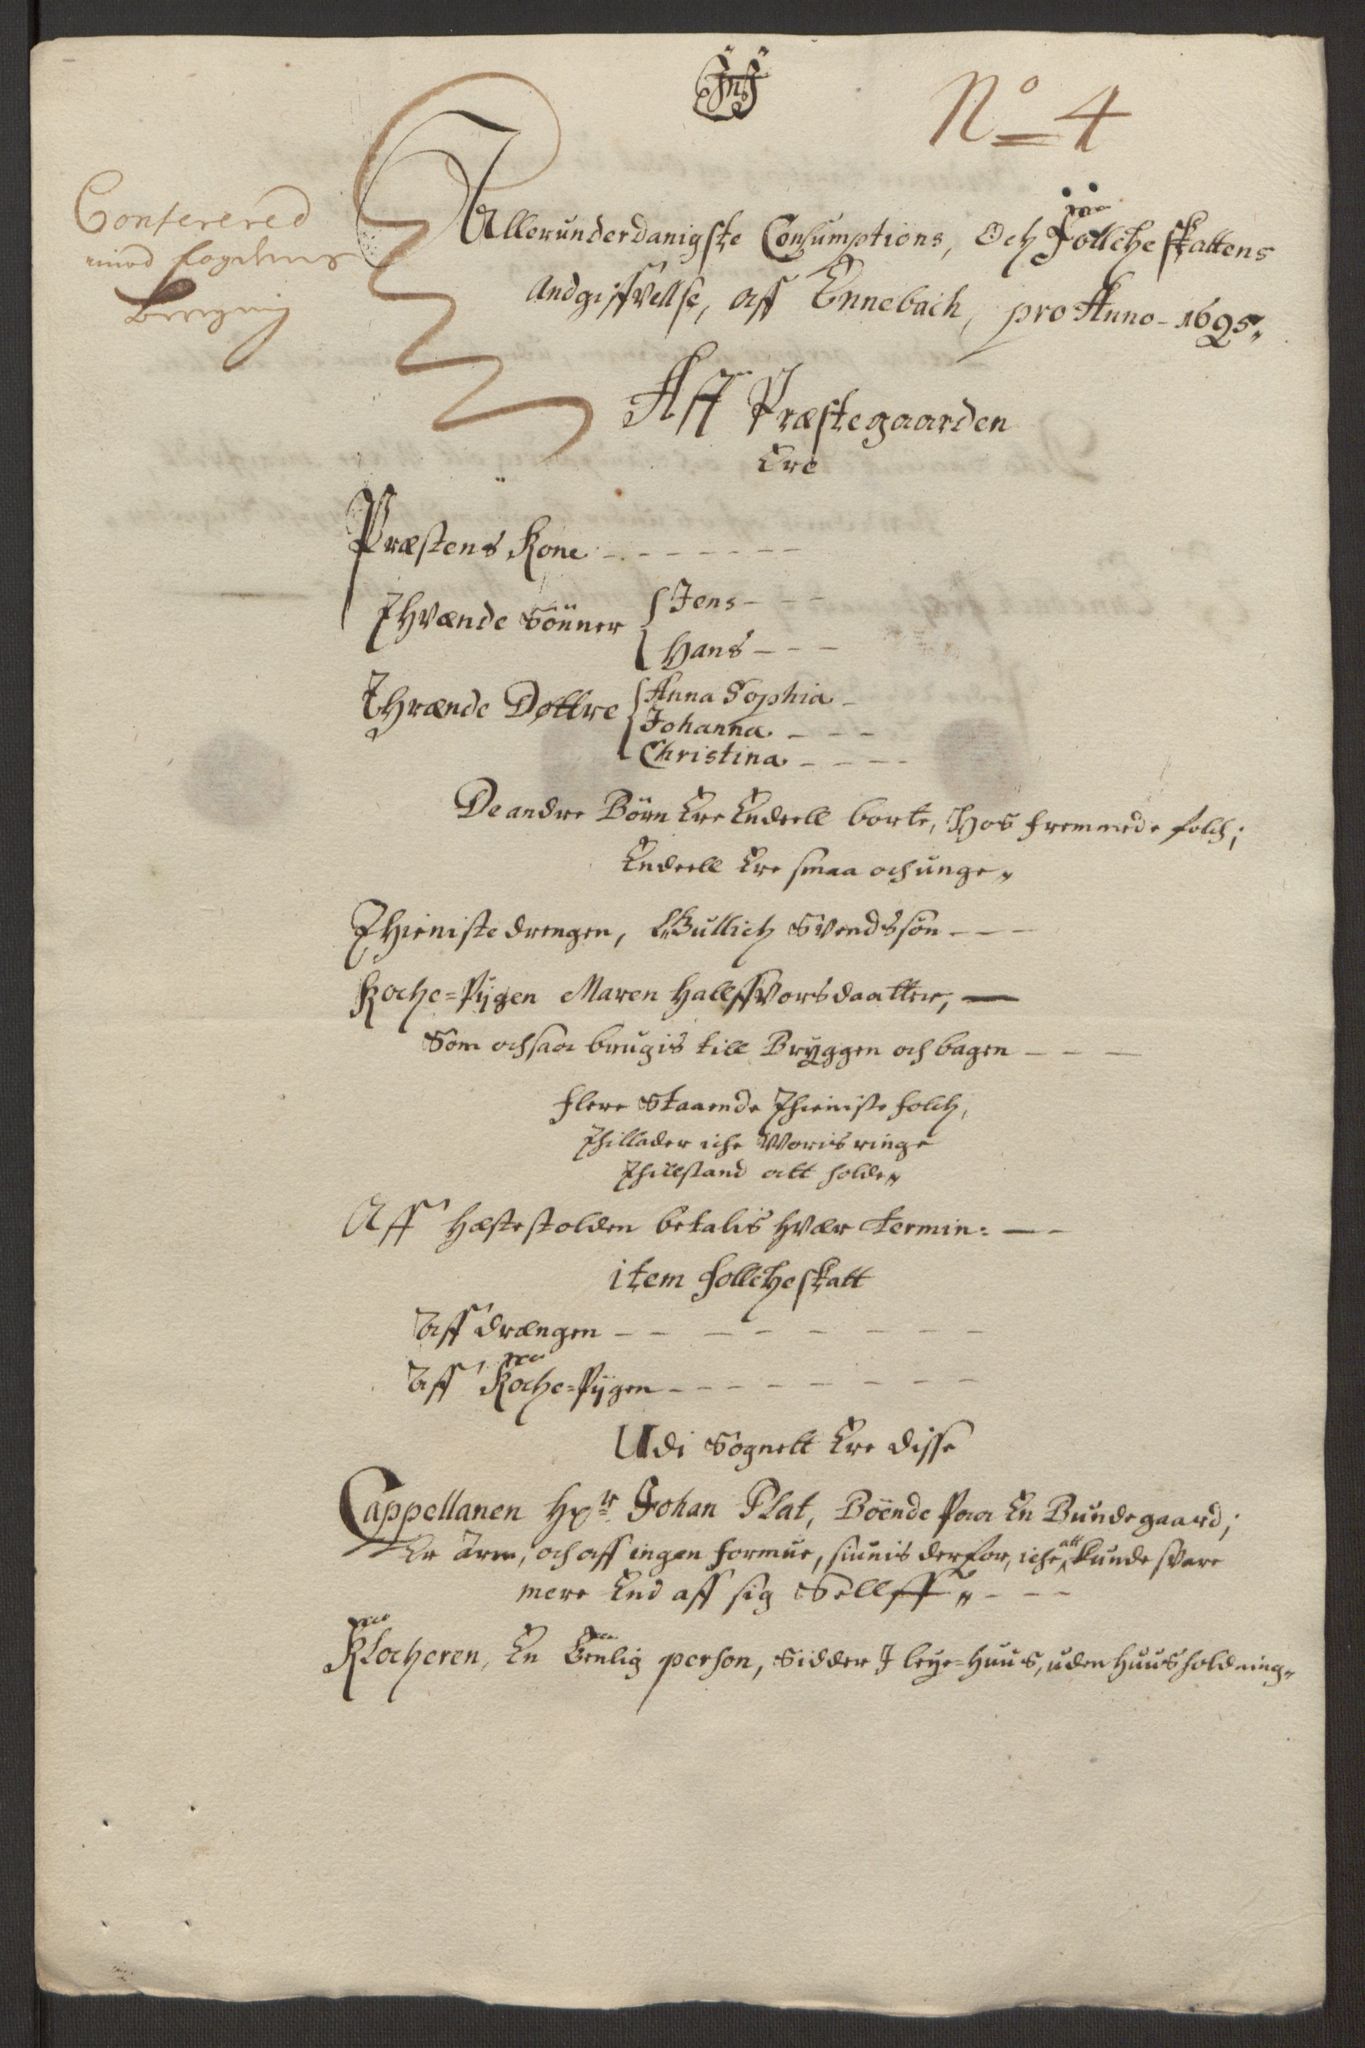 No 4
Conferered
med fogdens
Allerunderdanigste Consumptions, Och Follcheskattens
Andgiffvellse, aff Ennebach, pro Anno - 1695„
Aff Præstegaarden
Ere
Præstens Kone - - - - - - -
Thvænde Sönner { Jens - - -
Hans - - -
Thrænde Døttre { Anna Sophia -
Johanna - - - -
Christina - - - -
De andre Börn Ere Endeell borte, Hos fremmede folch;
Endeell Ere smaa och unge„
Thieniste drengen, Gullich Svendssön - - -
Koche=Pygen Maren Hallffvorsdaatter, —
Som ochsaa brugis till Bryggen och bagen - - -
flere Staaende Thieniste folch,
Thillader iche Woris ringe
Thillstand att holde„
Aff Hæstestolden betalis hvær Termin: — -
item follcheskatt
Aff drængen - - - - - - - -
Aff Koche=Pygen - - - - - - - -
Udi Sognett Ere disse
Cappellanen Hr Johan Plat, Böende Paa En Bundegaard;
Er Arm, och aff ingen formue, siunis derfor, iche att kunde svare
mere End aff sig Sellff„ - - -
Klocheren, En Eenlig person, Sidder J leye=Huus, uden Huusholdning„